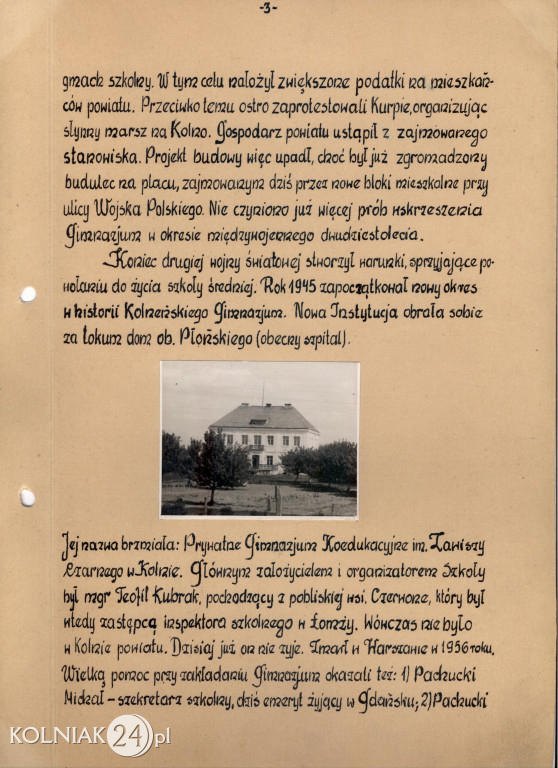 -3-
gmach szkolny. W tym celu nałożył zwiększone podatki na mieszkań-
ców powiatu. Przeciwko temu ostro zaprotestowali Kurpie, organizując
słynny marsz na Kolno. Gospodarz powiatu ustąpił z zajmowanego
stanowiska. Projekt budowy więc upadł, choć był już zgromadzony
budulec na placu, zajmowanym dziś przez nowe bloki mieszkalne przy
ulicy Wojska Polskiego. Nie czyniono już więcej prób wskrzeszenia
Gimnazjum w okresie międzywojennego dwudziestolecia.
Koniec drugiej wojny światowej stworzył warunki, sprzyjające po-
wołaniu do życia szkoły średniej. Rok 1945 zapoczątkował nowy okres
w historii Kolneńskiego Gimnazjum. Nowa Instytucja obrała sobie
za lokum dom ob. Płońskiego (obecny szpital).
Jej nazwa brzmiała: Prywatne Gimnazjum Koedukacyjne im. Zawiszy
Czarnego w Kolnie. Głównym założycielem i organizatorem Szkoły
był mgr Teofil Kubrak, pochodzący z pobliskiej wsi, Czerwone, który był
wtedy zastępcą inspektora szkolnego w Łomży. Wówczas nie było
w Kolnie powiatu. Dzisiaj już on nie żyje. Zmarł w Warszawie w 1956 roku.
Wielką pomoc przy zakładaniu Gimnazjum okazali też: 1) Pachucki
Michał – szekretarz szkolny, dziś emeryt żyjący w Gdańsku; 2) Pachucki
KOLNIAK24.pl